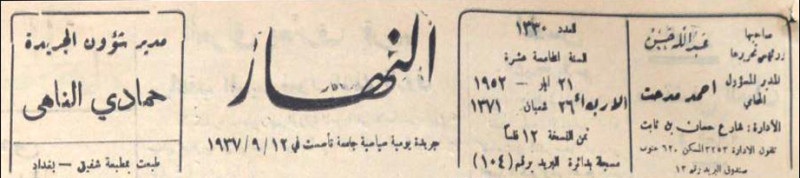 صاحبها
ورئيس تحريرها
عبد الله حسين
المدير المسؤول
المحامي
احمد مدحت
الادارة: شارع حسان بن ثابت
تلفون الادارة ٣٢٥٣ المسكن ٦٢٠ جنوب
صندوق البريد رقم ١٣
العدد ١٣٣٠
السنة الخامسة عشرة
الاربعاء
٢١ ايار – ١٩٥٢
٢٦ شعبان ١٣٧١
ثمن النسخة ١٢ فلساً
مسجلة بدائرة البريد برقم (١٠٤)
النهار
جريدة يومية سياسية جامعة تأسست في ١٩٣٧/٩/١٢
مدير شؤون الجريدة
حمادي الناهي
طبعت بمطبعة شفيق – بغداد